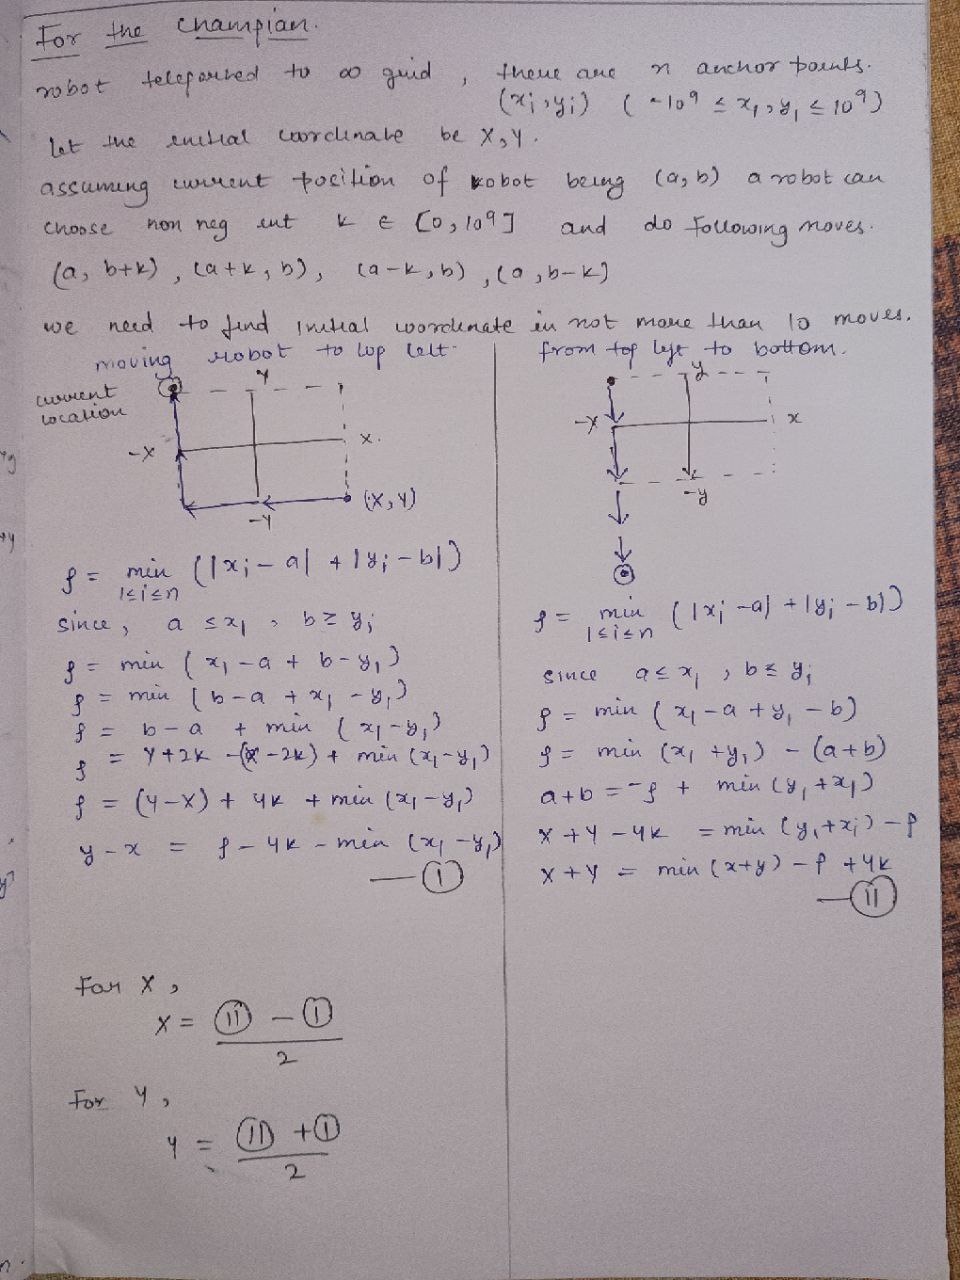 For the champian.
robot teleported to ∞ grid, there are n anchor points.
(xi, yi) (-10^9 ≤ xi, yi ≤ 10^9)
let the initial coordinate be X, Y.
assuming current position of robot being (a, b) a robot can
choose non neg int k ∈ [0, 10^9] and do following moves.
(a, b+k), (a+k, b), (a-k, b), (a, b-k]
we need to find initial coordinate in not more than 10 moves.
moving robot to top left.
current
location
Y
-X
X.
(X, Y)
-Y
ρ = min (|xi - a| + |yi - b|)
1≤i≤n
since, a ≤ xi, b ≥ yi
ρ = min (xi - a + b - yi)
ρ = min (b - a + xi - yi)
ρ = b - a + min (xi - yi)
ρ = Y + 2k - (X - 2k) + min (xi - yi)
ρ = (Y - X) + 4k + min (xi - yi)
y - x = ρ - 4k - min (xi - yi)
— (I)
from top left to bottom.
y
-X
x
-y
ρ = min (|xi - a| + |yi - b|)
1≤i≤n
since a ≤ xi, b ≤ yi
ρ = min (xi - a + yi - b)
ρ = min (xi + yi) - (a + b)
a + b = -ρ + min (yi + xi)
X + Y - 4k = min (yi + xi) - ρ
X + Y = min (x + y) - ρ + 4k
— (II)
For X,
X = (II) - (I)
2
For Y,
Y = (II) + (I)
2